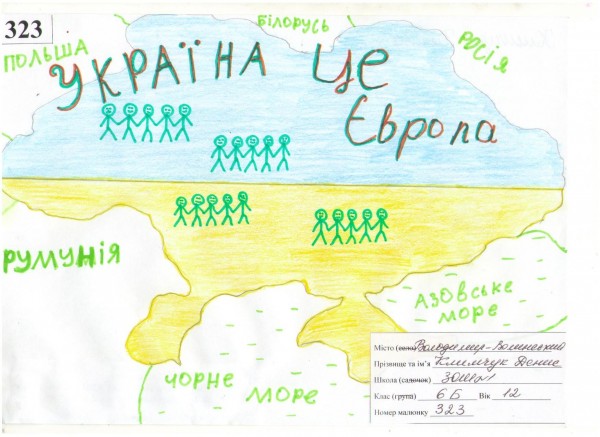 323
ПОЛЬША
БІЛОРУСЬ
РОСІЯ
УКРАЇНА ЦЕ
Європа
РУМУНІЯ
АЗОВСЬКЕ
МОРЕ
ЧОРНЕ МОРЕ
Місто (село) Володимир-Волинський
Прізвище та ім'я Климчук Денис
Школа (садочок) ЗОШ №1
Клас (група) 6 Б Вік 12
Номер малюнку 323